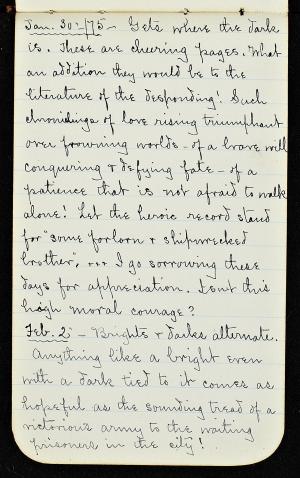 Jan. 30 - /75 - Gets where the dark
is. These are cheering pages. What
an addition they would be to the
literature of the desponding! Such
chronicings of love rising triumphant
over frowning worlds - of a brave will
conquering & defying fate - of a
patience that is not afraid to walk
alone! Let the heroic record stand
for "some forlorn & shipwrecked
brother", ... I go sorrowing these
days for appreciation. Isnt this
high moral courage?
Feb. 2 - Brights & darks alternate.
Anything like a bright even
with a dark tied to it comes as
hopeful as the sounding tread of a
victorious army to the waiting
prisoners in the city!